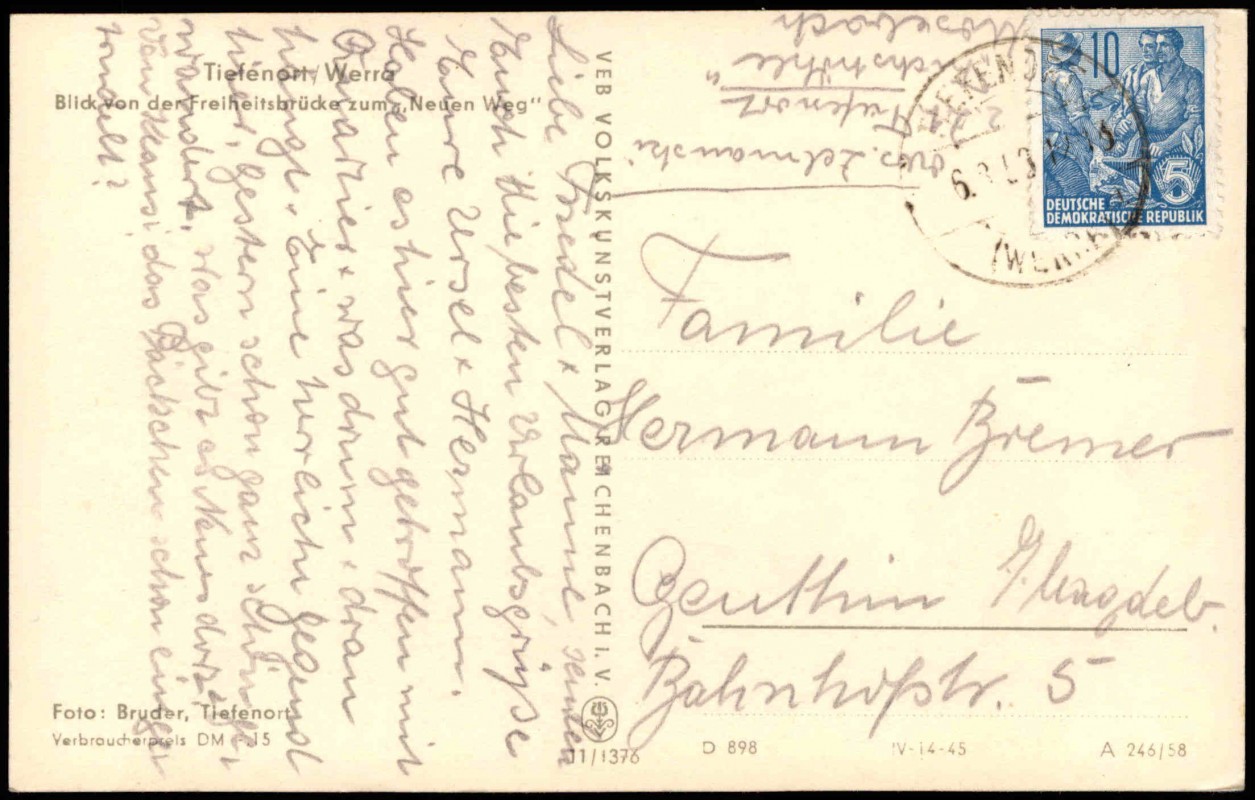 Tiefenort/Werra
Blick von der Freiheitsbrücke zum „Neuen Weg“
Liebe Friedel + Manne, senden
Euch die besten Urlaubsgrüße
Eure Ursel + Hermann.
Haben es hier gut getroffen mit
Quartier + was drum + dran
hängt. Eine herrliche Gegend
hier, gestern schon ganz schön
wandert. Was gibt es Neues dort?
das Päckchen schon einge
Foto: Bruder, Tiefenort
Verbraucherpreis DM 0.15
VEB VOLKSKUNSTVERLAG REICHENBACH I. V.
11/1376
Tiefenort
10
5
DEUTSCHE
DEMOKRATISCHE REPUBLIK
Familie
Hermann Bremer
Genthin
Bahnhofstr. 5
D 898
IV-14-45
A 246/58